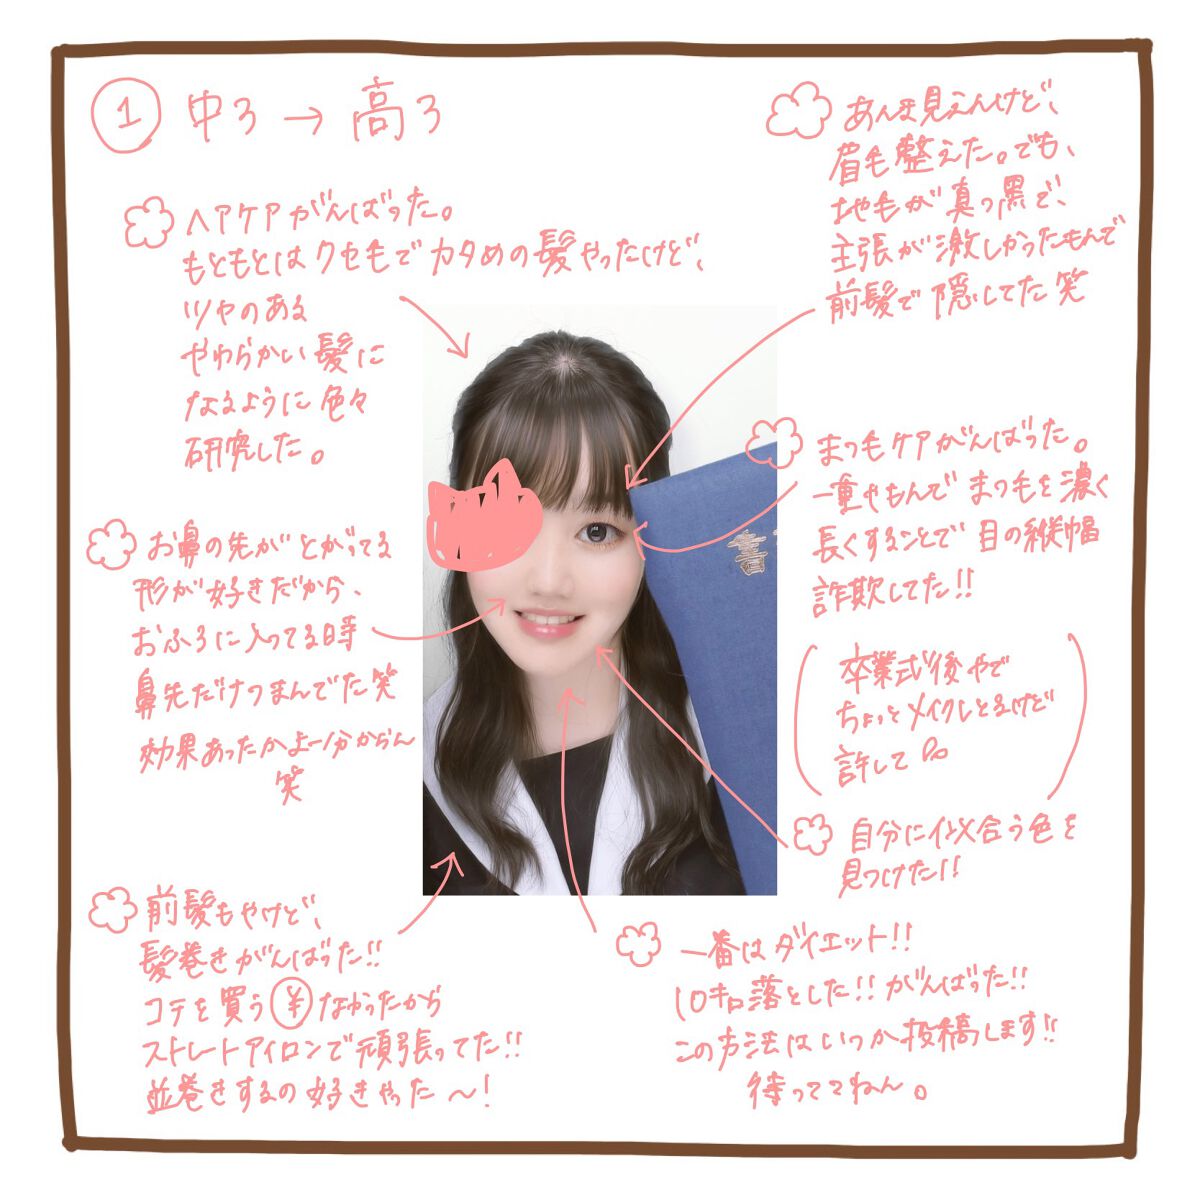 ① 中3→高3
ヘアケアがんばった。
もともとはクセ毛でカタめの髪やったけど、
ツヤのある
やわらかい髪に
なるように色々
研究した。
お鼻の先がとがってる
形が好きだから、
おふろに入ってる時
鼻先だけつまんでた笑
効果あったかよー分からん
笑
前髪もやけど、
髪巻きがんばった!!
コテを買う¥なかったから
ストレートアイロンで頑張ってた!!
並巻きするの好きやった〜!
あんま見えんけど、
眉毛整えた。でも、
地毛が真っ黒で、
主張が激しかったもんで
前髪で隠してた笑
まつ毛ケアがんばった。
一重やもんでまつ毛を濃く
長くすることで目の縦幅
詐欺してた!!
(卒業式後やで
ちょっとメイクしとるけど
許して)
自分に似合う色を
見つけた!!
一番はダイエット!!
10キロ落とした!!がんばった!!
この方法はいつか投稿します!!
待っててねん。